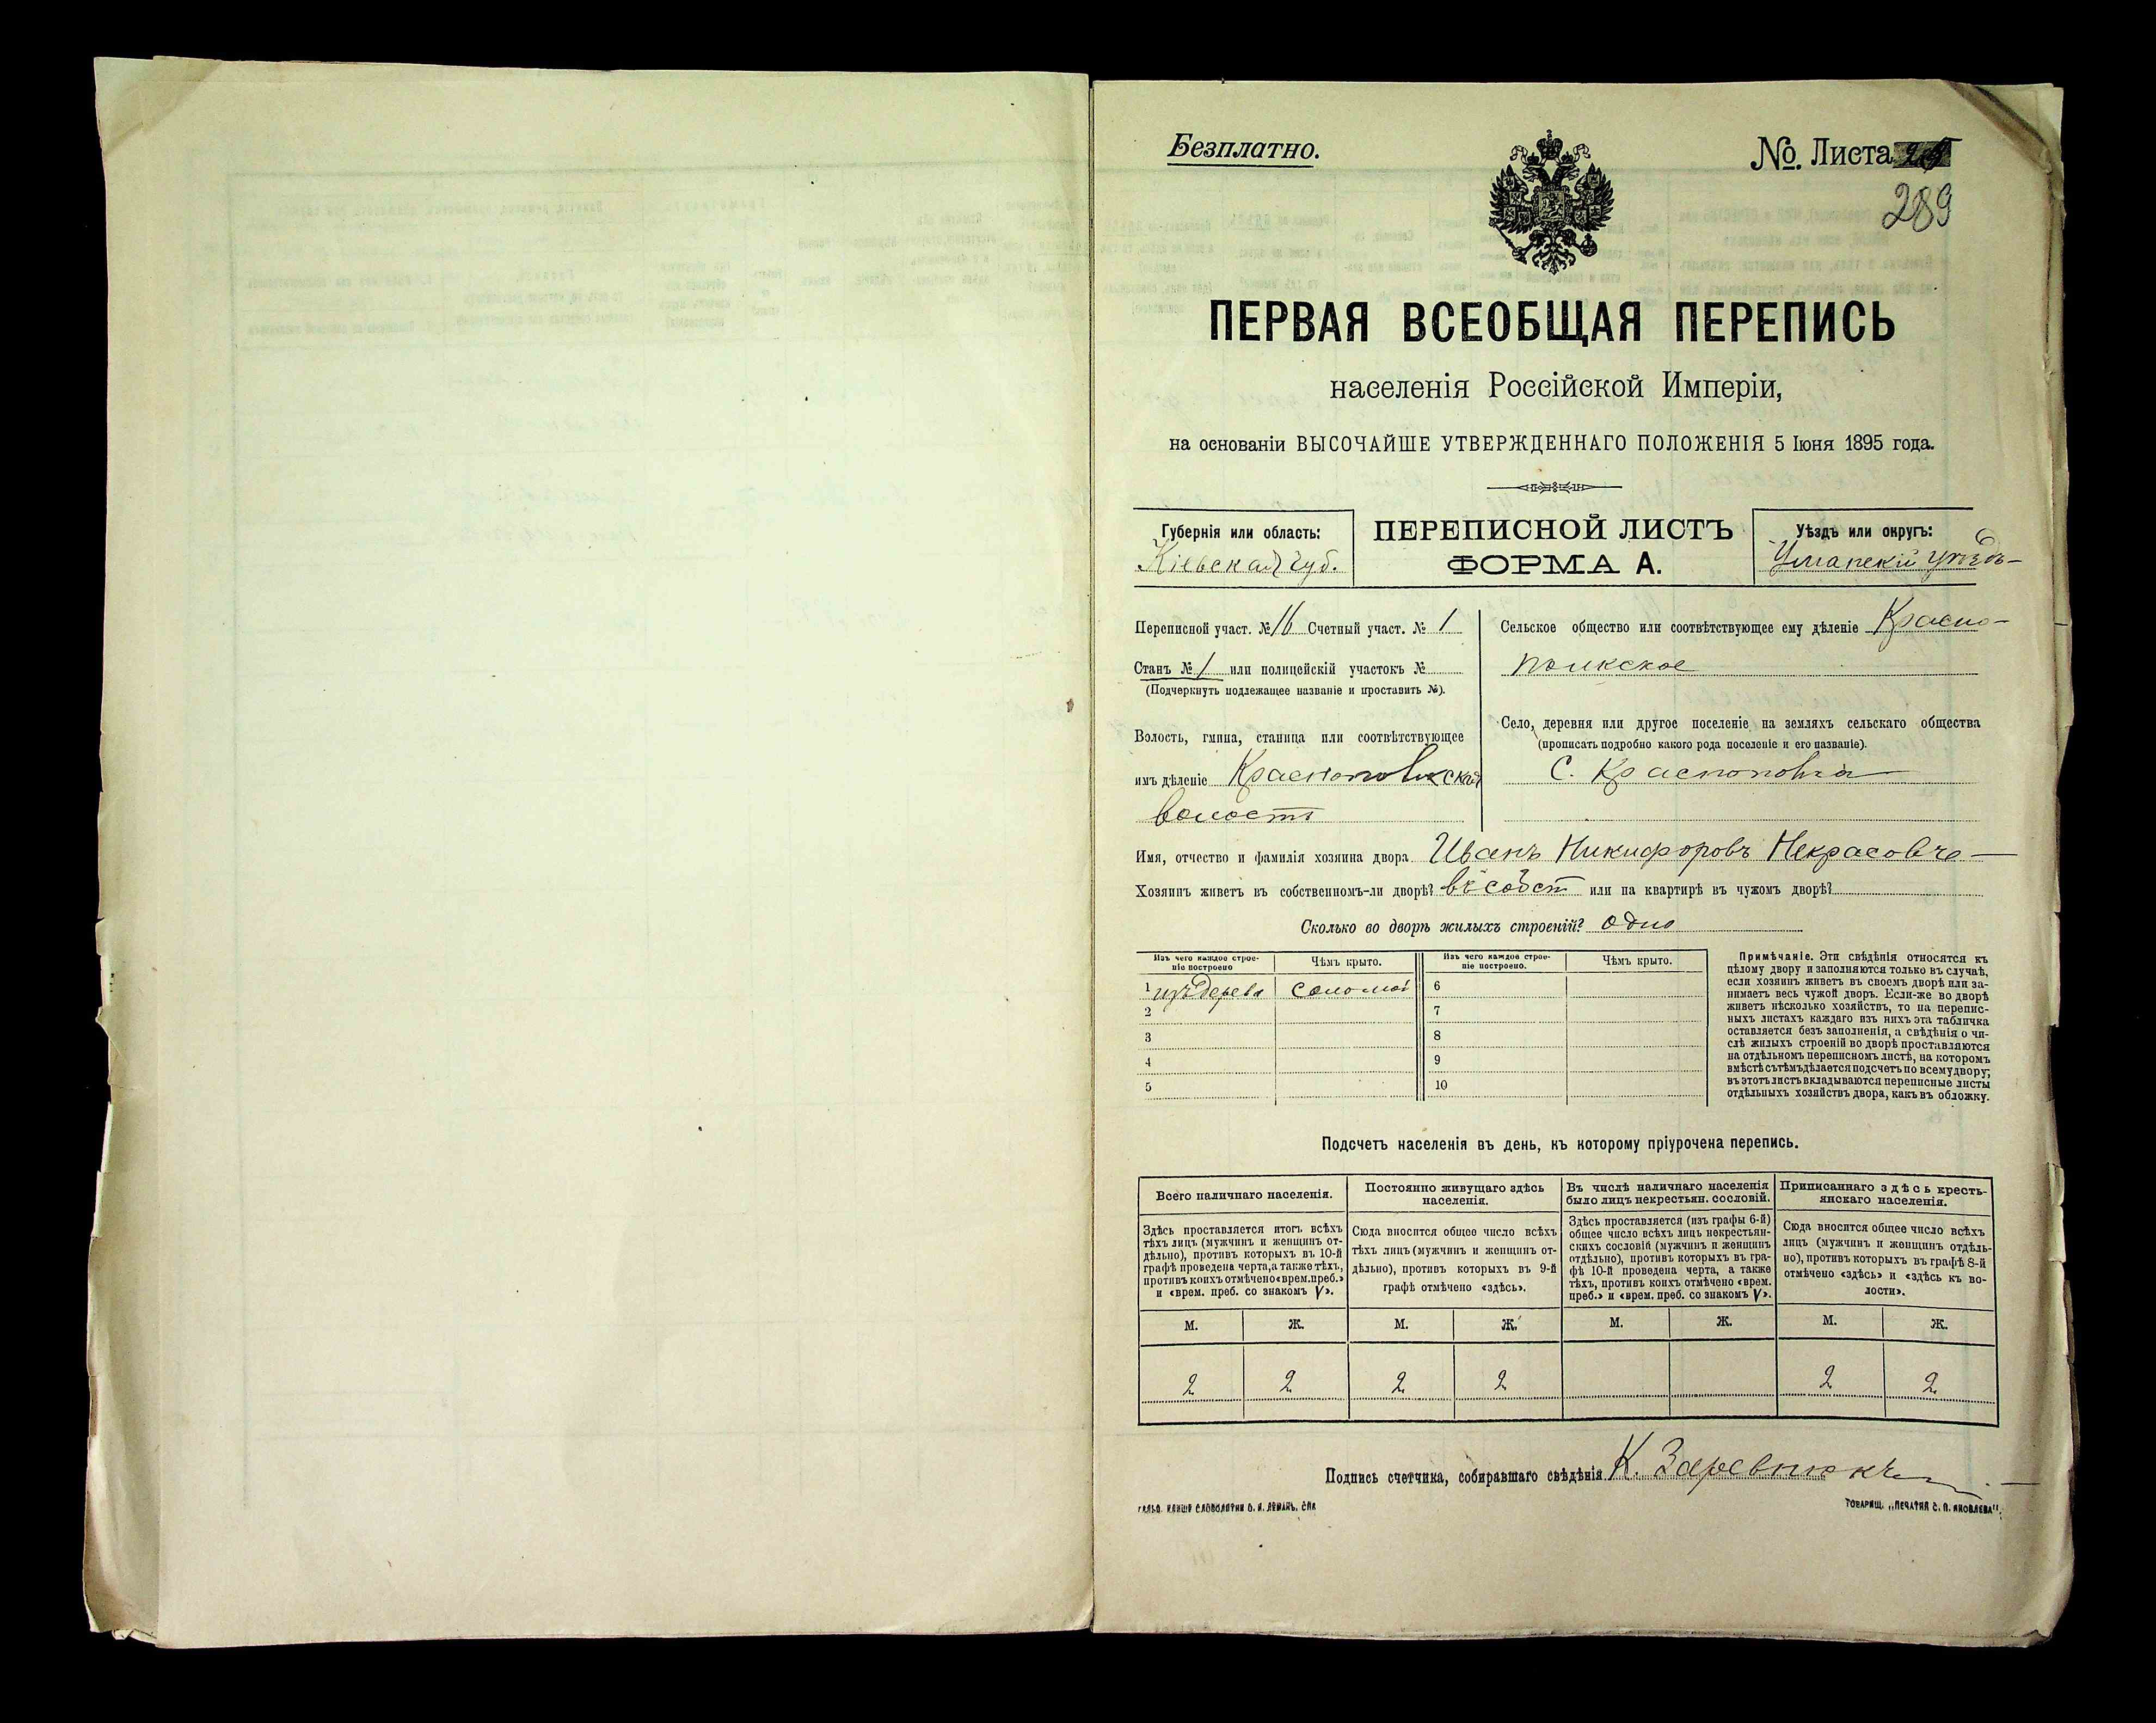 Безплатно.
№. Листа
289
ПЕРВАЯ ВСЕОБЩАЯ ПЕРЕПИСЬ
населенія Россійской Имперіи,
на основаніи ВЫСОЧАЙШЕ УТВЕРЖДЕННАГО ПОЛОЖЕНІЯ 5 Іюня 1895 года.
Губернія или область:
Кіевская губ.
ПЕРЕПИСНОЙ ЛИСТЪ
ФОРМА А.
Уѣздъ или округъ:
Уманскій уѣздъ
Переписной участ. № 16 Счетный участ. № 1
Станъ № 1 или полицейскій участокъ №
(Подчеркнуть подлежащее названіе и проставить №).
Волость, гмина, станица или соотвѣтствующее
имъ дѣленіе Краснополкская
волость
Сельское общество или соотвѣтствующее ему дѣленіе Красно-
полкское
Село, деревня или другое поселеніе на земляхъ сельскаго общества
(прописать подробно какого рода поселеніе и его названіе).
С. Краснополка
Имя, отчество и фамилія хозяина двора Иванъ Никифоровъ
Хозяинъ живетъ въ собственномъ-ли дворѣ? въ собст или на квартирѣ въ чужомъ дворѣ?
Сколько во дворѣ жилыхъ строеній? одно
Изъ чего каждое строе-
ніе построено
Чѣмъ крыто.
Изъ чего каждое строе-
ніе построено.
Чѣмъ крыто.
1 изъ дерева соломой
2
3
4
5
6
7
8
9
10
Примѣчаніе. Эти свѣдѣнія относятся къ
цѣлому двору и заполняются только въ случаѣ,
если хозяинъ живетъ въ своемъ дворѣ или за-
нимаетъ весь чужой дворъ. Если-же во дворѣ
живетъ нѣсколько хозяйствъ, то на перепис-
ныхъ листахъ каждаго изъ нихъ эта табличка
оставляется безъ заполненія, а свѣдѣнія о чи-
слѣ жилыхъ строеній во дворѣ проставляются
на отдѣльномъ переписномъ листѣ, на которомъ
вмѣстѣ съ тѣмъ дѣлается подсчетъ по всему двору;
въ этотъ листъ вкладываются переписные листы
отдѣльныхъ хозяйствъ двора, какъ въ обложку.
Подсчетъ населенія въ день, къ которому пріурочена перепись.
Всего наличнаго населенія.
Здѣсь проставляется итогъ всѣхъ
тѣхъ лицъ (мужчинъ и женщинъ от-
дѣльно), противъ которыхъ въ 10-й
графѣ проведена черта, а также тѣхъ,
противъ коихъ отмѣчено «врем. преб.»
и «врем. преб. со знакомъ V».
Постоянно живущаго здѣсь
населенія.
Сюда вносится общее число всѣхъ
тѣхъ лицъ (мужчинъ и женщинъ от-
дѣльно), противъ которыхъ въ 9-й
графѣ отмѣчено «здѣсь».
Въ числѣ наличнаго населенія
было лицъ некрестьян. сословій.
Здѣсь проставляется (изъ графы 6-й)
общее число всѣхъ лицъ некрестьян-
скихъ сословій (мужчинъ и женщинъ
отдѣльно), противъ которыхъ въ гра-
фѣ 10-й проведена черта, а также
тѣхъ, противъ коихъ отмѣчено «врем.
преб.» и «врем. преб. со знакомъ V».
Приписаннаго здѣсь кресть-
янскаго населенія.
Сюда вносится общее число всѣхъ
лицъ (мужчинъ и женщинъ отдѣль-
но), противъ которыхъ въ графѣ 8-й
отмѣчено «здѣсь» и «здѣсь къ во-
лости».
М. Ж. М. Ж. М. Ж. М. Ж.
2 2 2 2 2 2
Подпись счетчика, собиравшаго свѣдѣнія К.
СЛОВОЛИТНИ О. И. ЛЕМАНЪ, СПБ
ТОВАРИЩ. „ПЕЧАТНЯ С. П. ЯКОВЛЕВА".